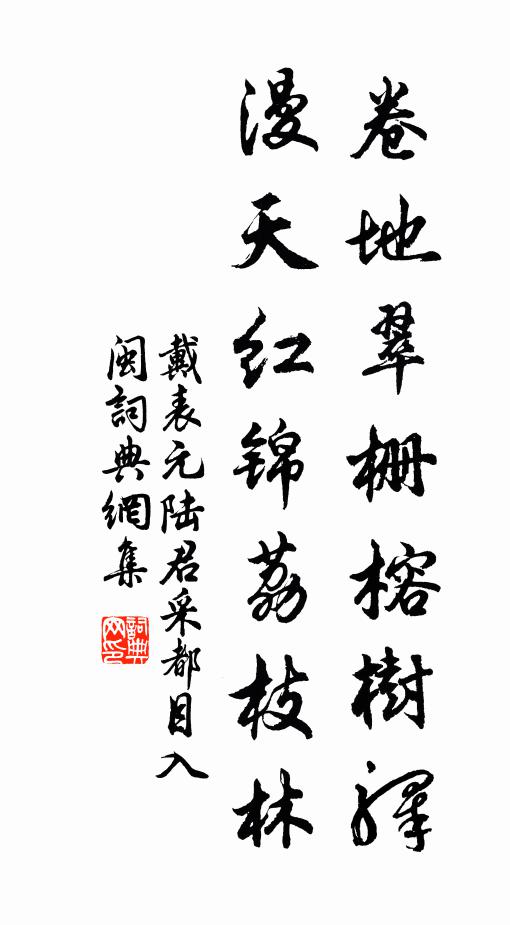 卷地翠栅榕樹驛
漫天红锦荔枝林
戴表元陆君采都目入
闽詞典網集
詞典网印